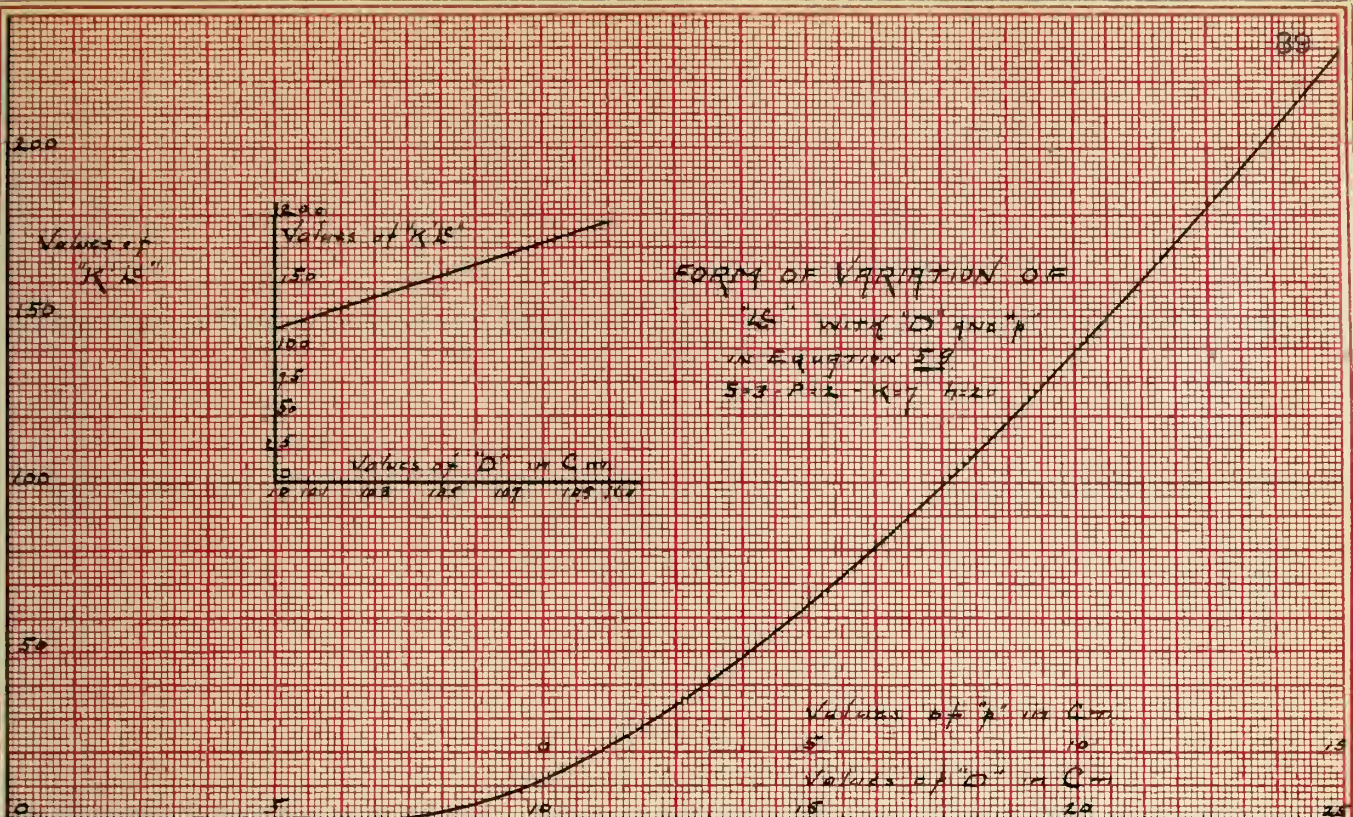 39
200
Values of
150
100
50
0
200
Values of "K
150
100
75
50
25
0
Values of "D" in Cm
10 101 103 105 107 109
FORM OF VARIATION OF
WITH "D" AND "p"
IN EQUATION 59
S=3-P=2-K=7 h=20
Values of "p" in Cm
0 5 10 15
Values of "D" in Cm
5 10 15 20 25